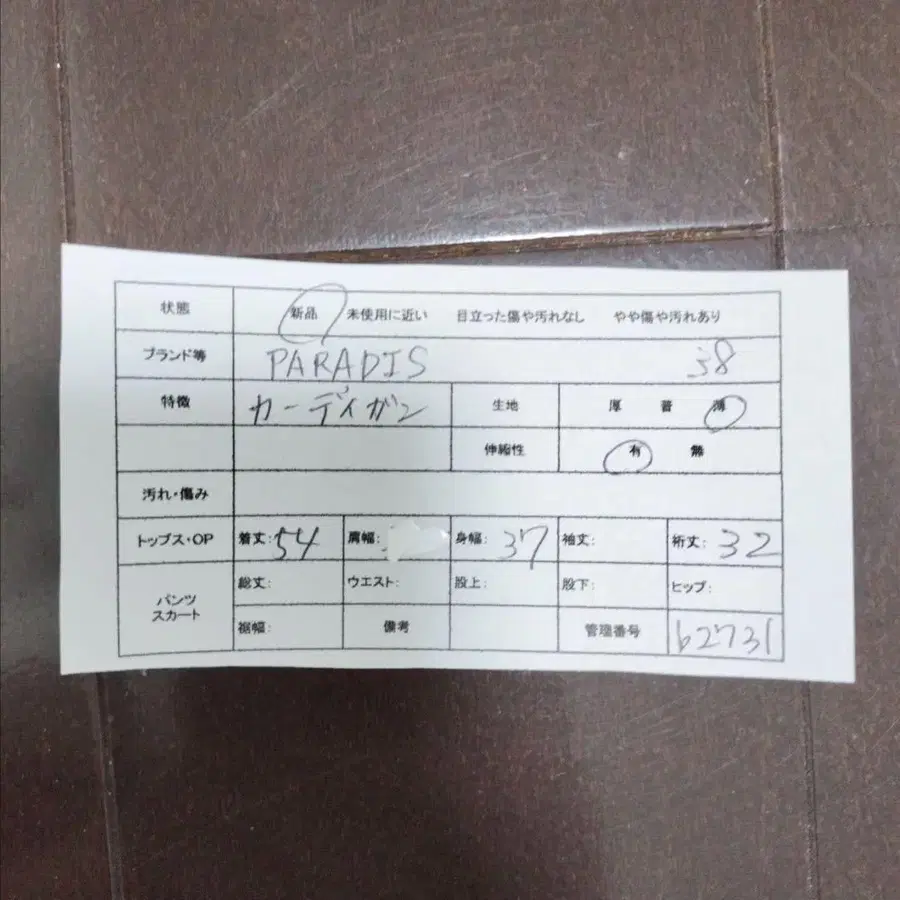 状態 新品 未使用に近い 目立った傷や汚れなし やや傷や汚れあり
ブランド等 PARADIS 38
特徴 カーディガン 生地 厚 普 薄
伸縮性 有 無
汚れ・傷み
トップス・OP 着丈:54 肩幅: 身幅:37 袖丈: 裄丈:32
パンツ
スカート
総丈: ウエスト: 股上: 股下: ヒップ:
裾幅: 備考 管理番号 62731